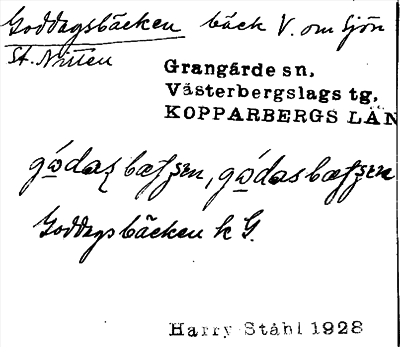 Goddagsbäcken bäck V. om Sjön
St. Nitten
Grangärde sn.
Västerbergslags tg.
KOPPARBERGS LÄN
Goddagsbäcken k G.
Harry Ståhl 1928